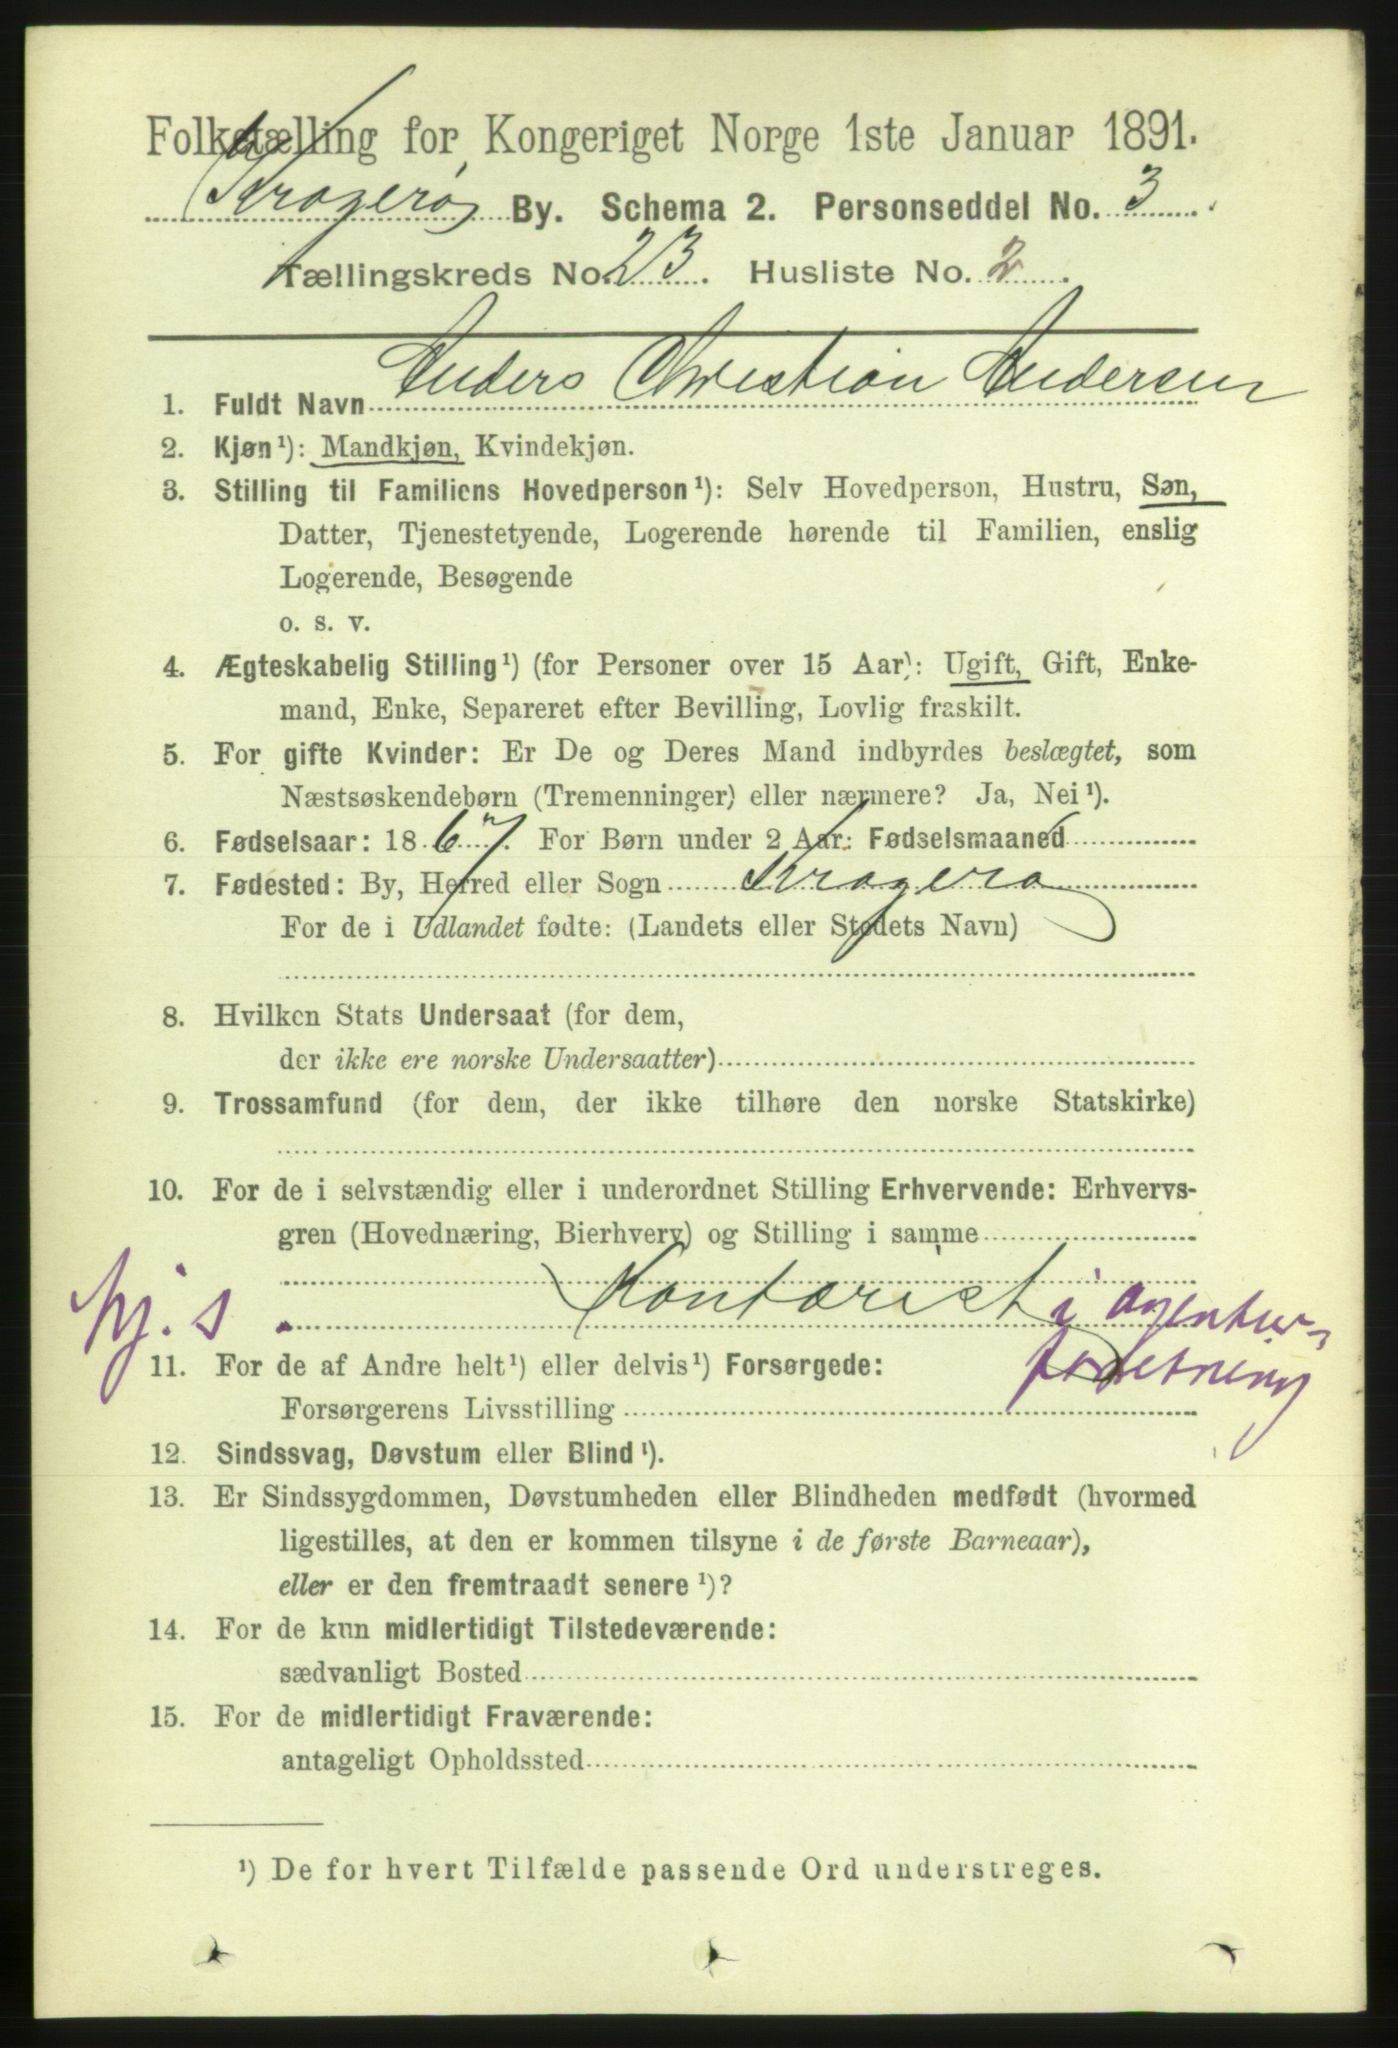 Folketælling for Kongeriget Norge 1ste Januar 1891.
Kragerø By. Schema 2. Personseddel No. 3
Tællingskreds No. 23. Husliste No. 2.
1. Fuldt Navn Anders Christian Andersen
2. Kjøn¹): Mandkjøn, Kvindekjøn.
3. Stilling til Familiens Hovedperson¹): Selv Hovedperson, Hustru, Søn,
Datter, Tjenestetyende, Logerende hørende til Familien, enslig
Logerende, Besøgende
o. s. v.
4. Ægteskabelig Stilling¹) (for Personer over 15 Aar): Ugift, Gift, Enke-
mand, Enke, Separeret efter Bevilling, Lovlig fraskilt.
5. For gifte Kvinder: Er De og Deres Mand indbyrdes beslægtet, som
Næstsøskendebørn (Tremenninger) eller nærmere? Ja, Nei¹).
6. Fødselsaar: 1867. For Børn under 2 Aar: Fødselsmaaned
7. Fødested: By, Herred eller Sogn Kragerø
For de i Udlandet fødte: (Landets eller Stedets Navn)
8. Hvilken Stats Undersaat (for dem,
der ikke ere norske Undersaatter)
9. Trossamfund (for dem, der ikke tilhøre den norske Statskirke)
10. For de i selvstændig eller i underordnet Stilling Erhvervende: Erhvervs-
gren (Hovednæring, Bierhverv) og Stilling i samme
hj. s. Kontorist i agentur-
forretning
11. For de af Andre helt¹) eller delvis¹) Forsørgede:
Forsørgerens Livsstilling
12. Sindssvag, Døvstum eller Blind¹).
13. Er Sindssygdommen, Døvstumheden eller Blindheden medfødt (hvormed
ligestilles, at den er kommen tilsyne i de første Barneaar),
eller er den fremtraadt senere¹)?
14. For de kun midlertidigt Tilstedeværende:
sædvanligt Bosted
15. For de midlertidigt Fraværende:
antageligt Opholdssted
¹) De for hvert Tilfælde passende Ord understreges.